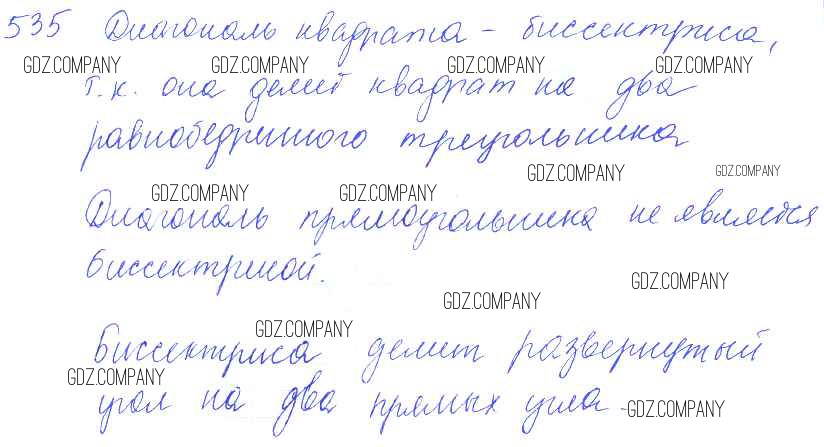 535 Диагональ квадрата - биссектриса,
GDZ.COMPANY GDZ.COMPANY GDZ.COMPANY GDZ.COMPANY
т.к. она делит квадрат на два
равнобедренного треугольника
GDZ.COMPANY GDZ.COMPANY
GDZ.COMPANY GDZ.COMPANY
Диагональ прямоугольника не является
биссектрисой.
GDZ.COMPANY
GDZ.COMPANY
GDZ.COMPANY
Биссектриса делит развернутый
GDZ.COMPANY
угол на два прямых угла
GDZ.COMPANY